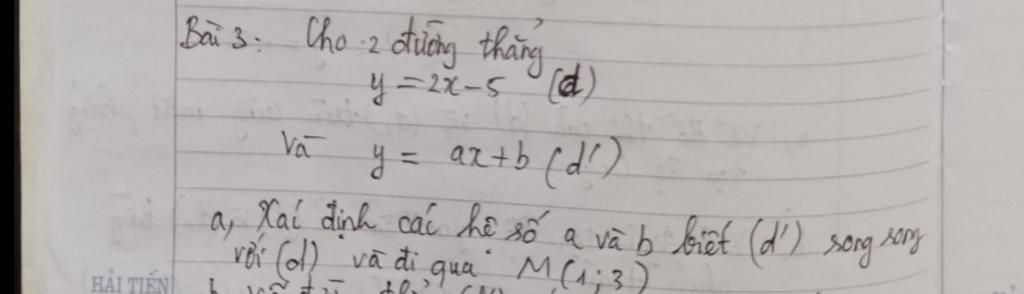 Bài 3: Cho 2 đường thẳng
y = 2x - 5 (d)
Và y = ax + b (d')
a, Xác định các hệ số a và b biết (d') song song
với (d) và đi qua M(1; 3)
HẢI TIẾN